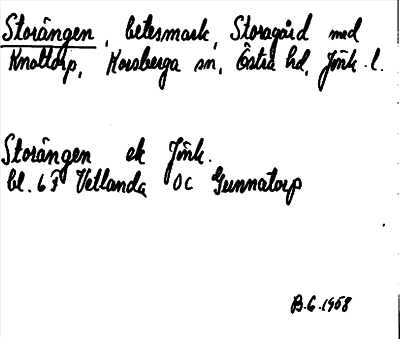 Storängen, betesmark, Storagård med
Knattorp, Korsberga sn, Östra hd, Jönk. l.
Storängen ek Jönk.
bl. 6 F Vetlanda OC Gunnatorp
B.G. 1958